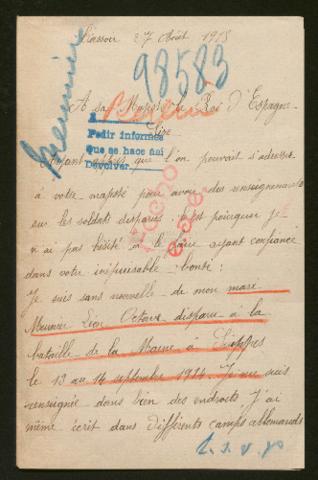 27 Août 1918
98583
Meunier
A sa Majesté le Roi d'Espagne
Sire
Pedir informes
Que se hace así
Devolver
Ayant appris que l'on pouvait s'adresser
à votre majesté pour avoir des renseignements
sur les soldats disparus c'est pourquoi je
n'ai pas hésité à le faire ayant confiance
dans votre inépuisable bonté :
Je suis sans nouvelle de mon mari
Meunier Léon Octave disparu à la
bataille de la Marne à Suippes
le 13 au 14 septembre 1914. J'ai me suis
renseignée dans bien des endroits j'ai
même écrit dans différents camps allemands